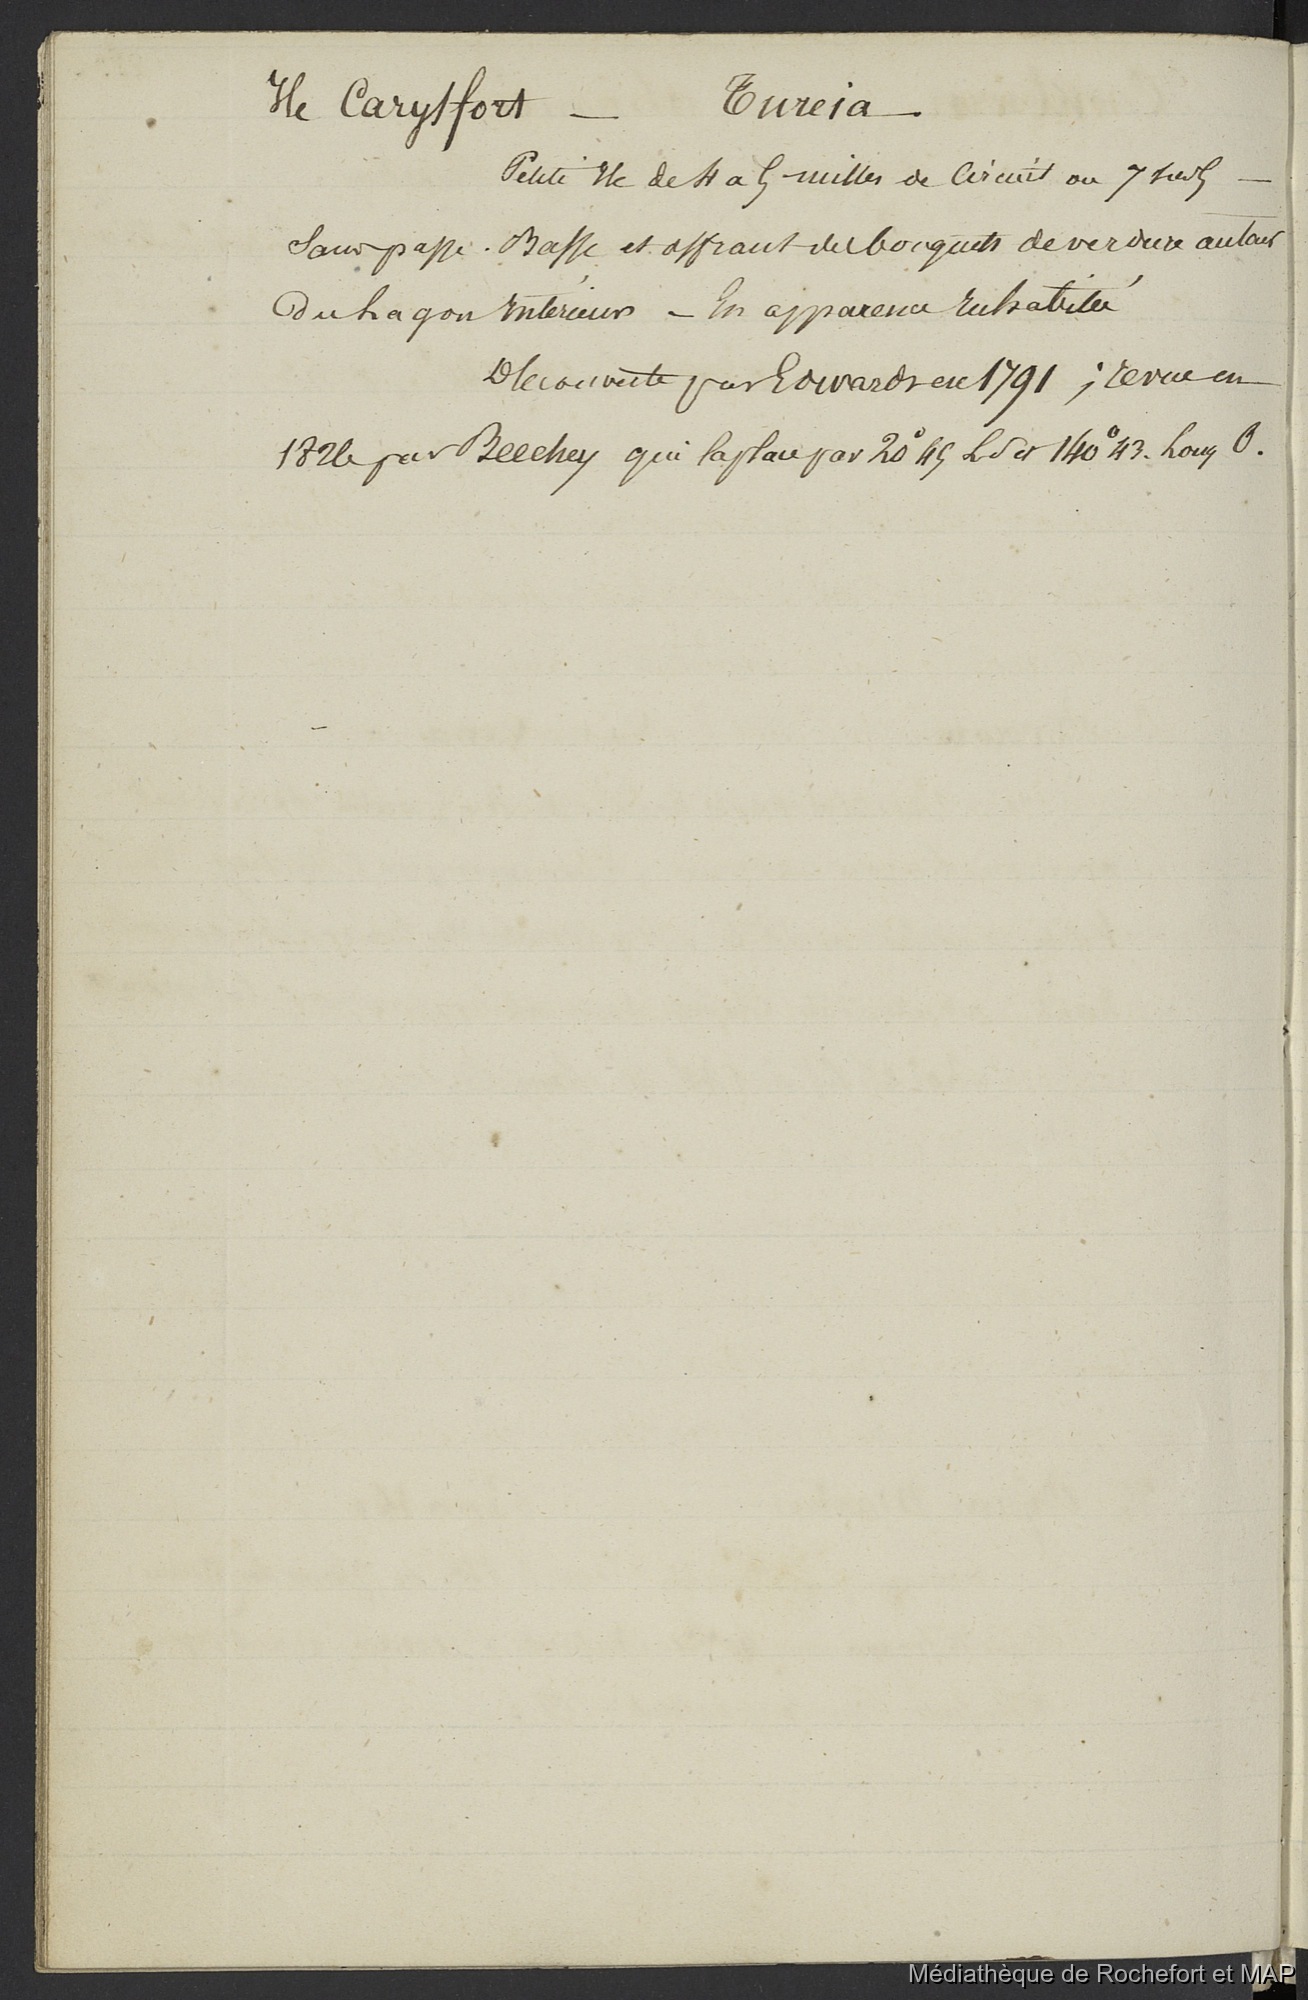 Ile Carysfort — Tureia —
Petite Ile de 4 a 5 milles de Circuit ou 7 —
Sans passe. Basse et offrant des bocquets de verdure autour
Du Lagon Intérieur — En apparence Inhabitée
Découverte par Edwards en 1791 ; revue en
1826 par Beechey qui la place par 20° 45 L S et 140° 43. Long O.
Médiathèque de Rochefort et MAP